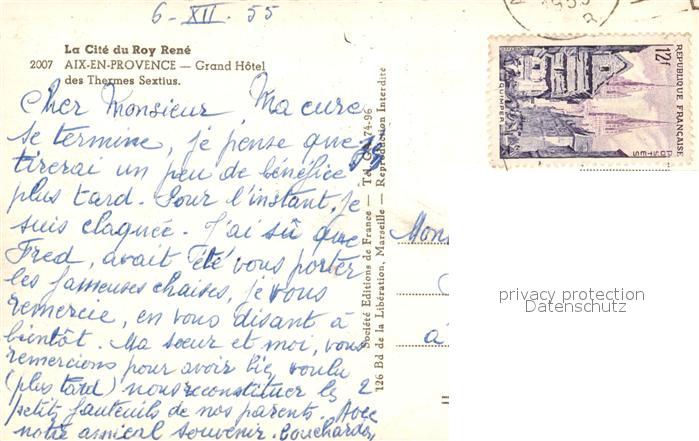 6-XII. 55
La Cité du Roy René
2007 AIX-EN-PROVENCE — Grand Hôtel
des Thermes Sextius.
Cher Monsieur, Ma cure
se termine, je pense que j'en
tirerai un peu de bénéfice
plus tard. Pour l'instant, je
suis claquée. J'ai sû que
Fred, avait été vous porter
les fameuses chaises, je vous
remercie, en vous disant à
bientôt. Ma sœur et moi, vous
remercions pour avoir bien voulu
(plus tard) nous reconstituer les 2
petits fauteuils de nos parents. Avec
notre amical souvenir.
Société Editions de France — 74-96
126 Bd de la Libération, Marseille — Reproduction Interdite
Mon
à
1955
12f
REPUBLIQUE FRANÇAISE
POSTES
QUIMPER
privacy protection
Datenschutz